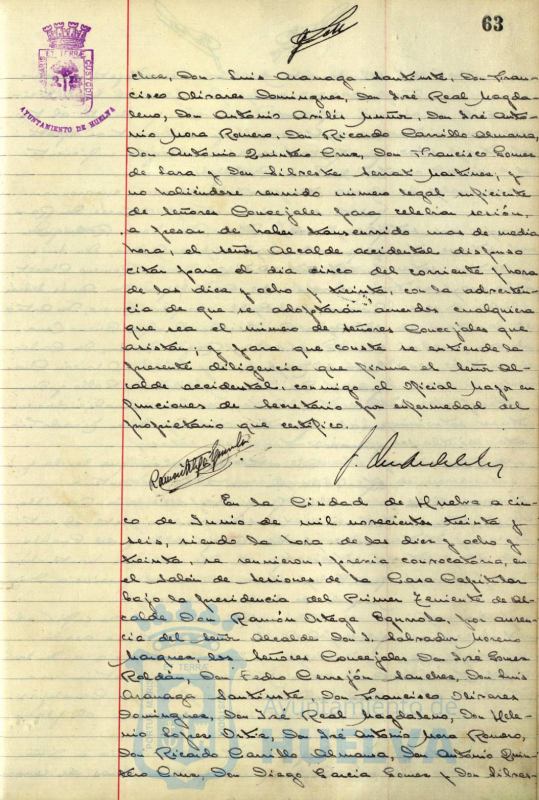 63
PORTUS MARIS ET TERRAE CUSTODIA
AYUNTAMIENTO DE HUELVA
Don Luis Aránaga Santiuste, Don Fran-
cisco Olivares Domínguez, Don José Real Magda-
leno, Don Antonio Muñoz, Don José Anto-
nio Mora Romero, Don Ricardo Carrillo Almansa,
Don Antonio Quintero Cruz, Don Francisco Gomez
de Lara y Don Silvestre Serrat Martinez, y
no habiéndose reunido número legal suficiente
de señores Concejales para celebrar sesión,
a pesar de haber transcurrido mas de media
hora, el señor Alcalde accidental dispuso
citar para el dia cinco del corriente y hora
de las diez y ocho y treinta, con la adverten-
cia de que se adoptarán acuerdos cualquiera
que sea el número de señores Concejales que
asistan; y para que conste se extiende la
presente diligencia que firma el señor Al-
calde accidental, conmigo el Oficial Mayor en
funciones de Secretario por enfermedad del
propietario que certifico.
En la Ciudad de Huelva a cin-
co de Junio de mil novecientos treinta y
seis, siendo la hora de las diez y ocho y
treinta, se reunieron, previa convocatoria, en
el Salón de sesiones de la Casa Capitular
bajo la Presidencia del Primer Teniente de Al-
calde Don Ramón Ortega Egurrola, por ausen-
cia del señor Alcalde Don Salvador Moreno
Marquez, los señores Concejales Don José Gomez
Roldán, Don Pedro Cerrejón Sanchez, Don Luis
Aránaga Santiuste, Don Francisco Olivares
Dominguez, Don José Real Magdaleno, Don Hele-
nio Lopez Ortiz, Don José Antonio Mora Romero,
Don Ricardo Carrillo Almansa, Don Antonio Quin-
tero Cruz, Don Diego Garcia Gomez y Don Silves-
Ayuntamiento de
HUELVA